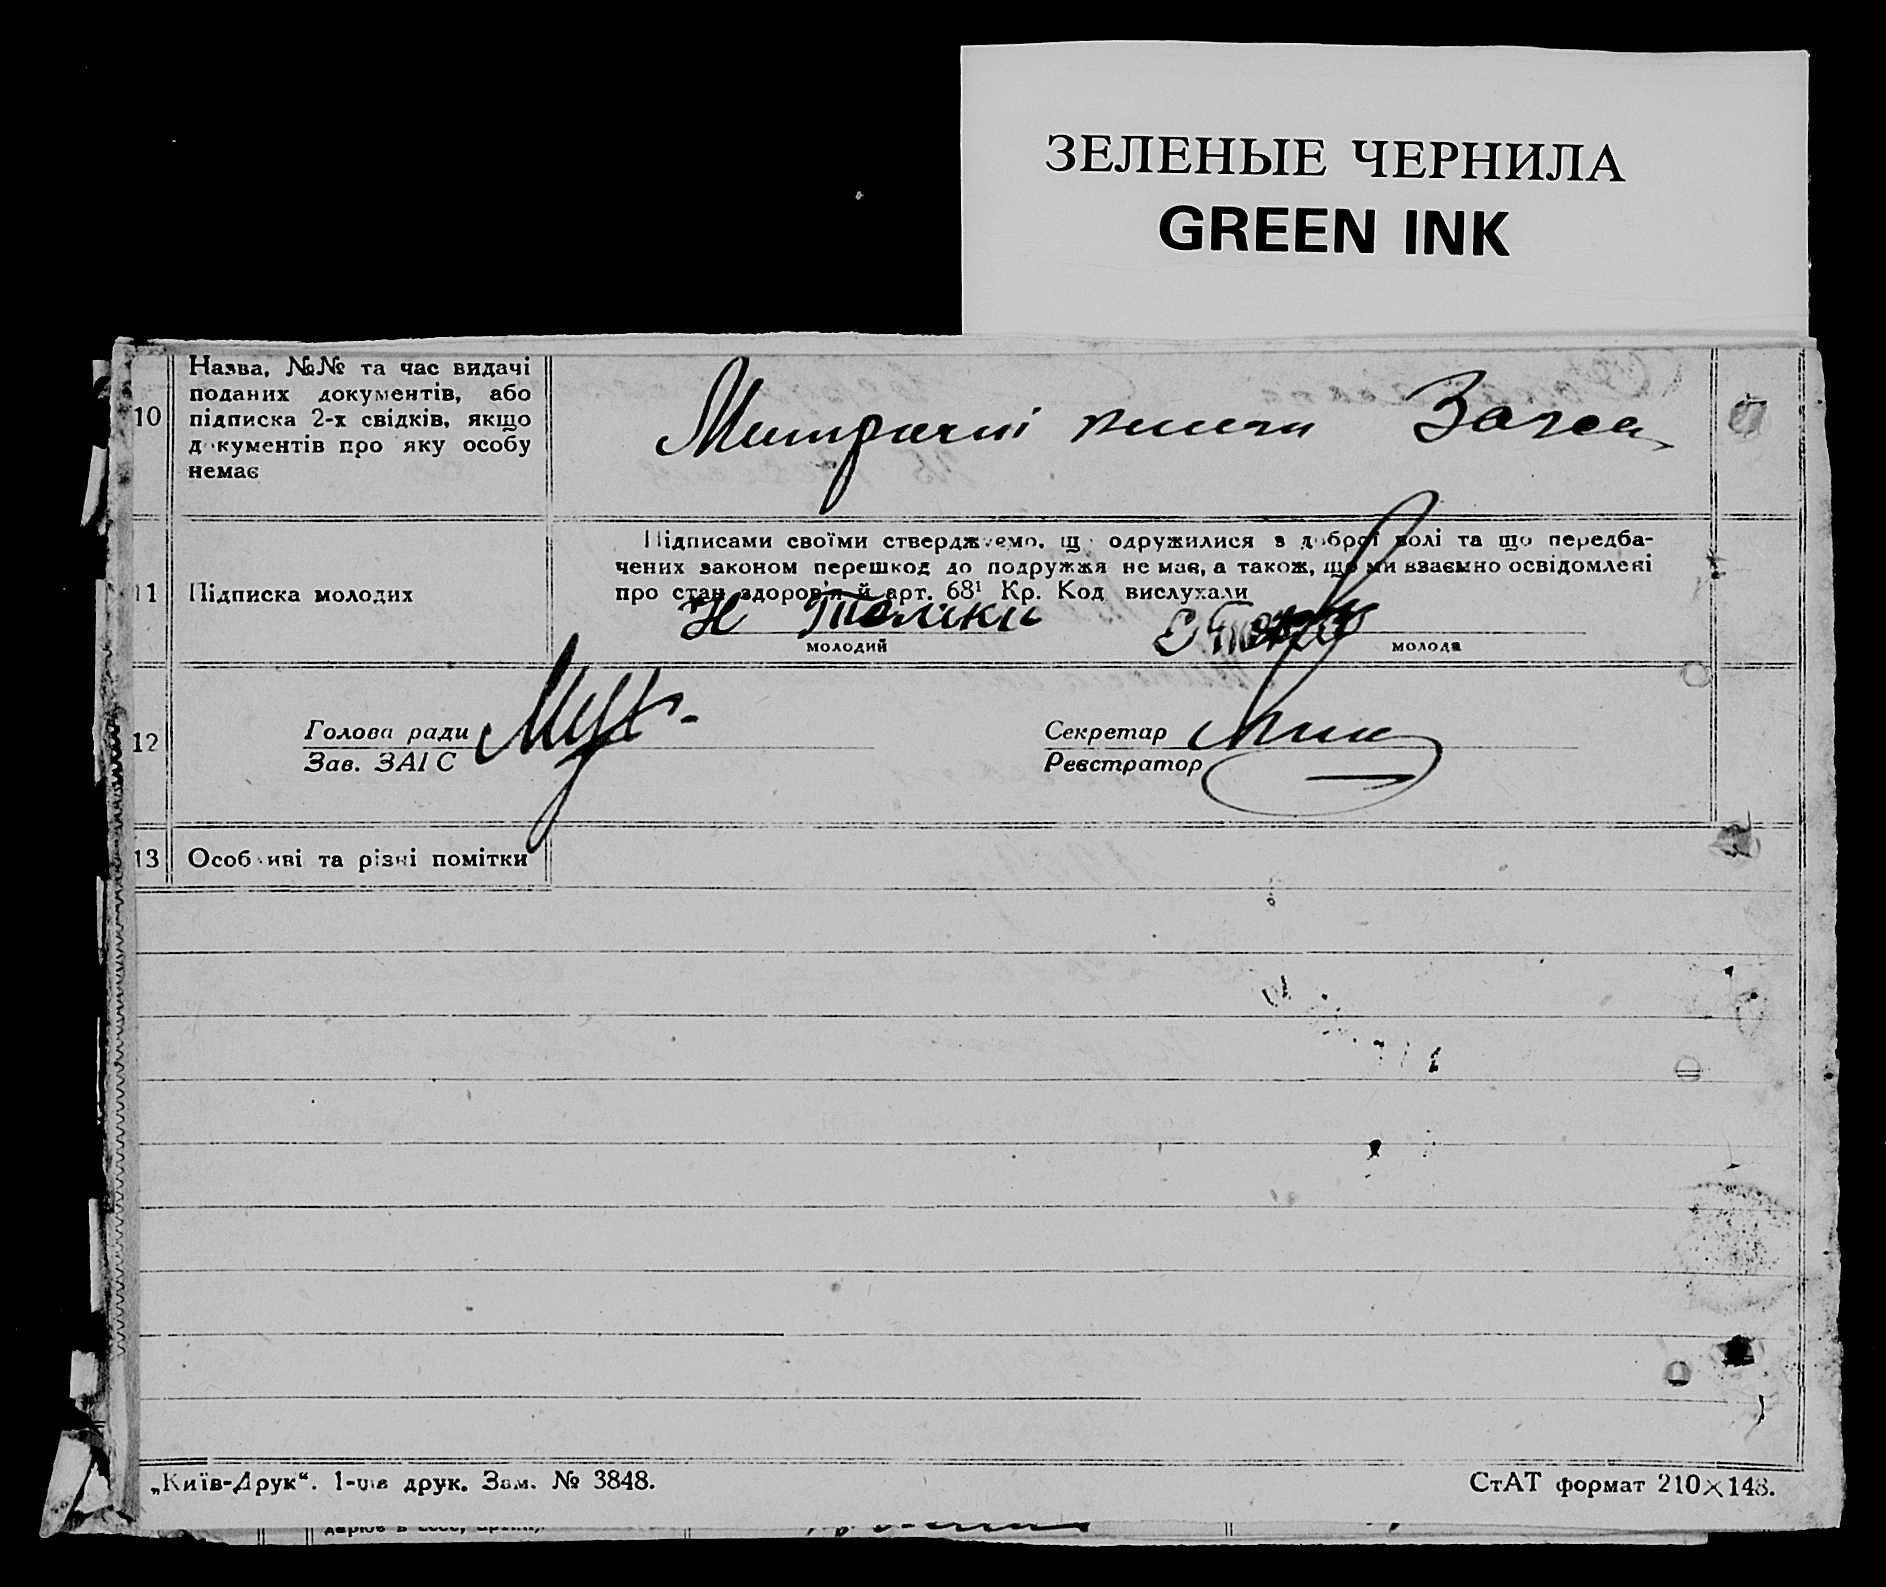 ЗЕЛЕНЫЕ ЧЕРНИЛА
GREEN INK
10
Назва, №№ та час видачі
поданих документів, або
підписка 2-х свідків, якщо
документів про яку особу
немає
Метричні
11
Підписка молодих
Підписами своїми стверджуємо, що одружилися з доброї волі та що передба-
чених законом перешкод до подружжя не має, а також, що ми взаємно освідомлені
про стан здоров'я й арт. 68¹ Кр. Код вислухали
молодий
молода
12
Голова ради
Зав. ЗАГС
Секретар
Реєстратор
13
Особливі та різні помітки
„Київ-Друк“. 1-ша друк. Зам. № 3848.
СтАТ формат 210×148.